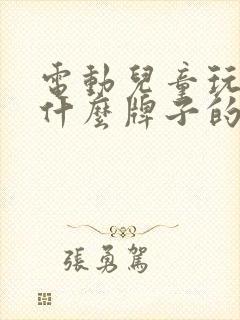 電動兒童玩
什麼牌子的
張勇駕